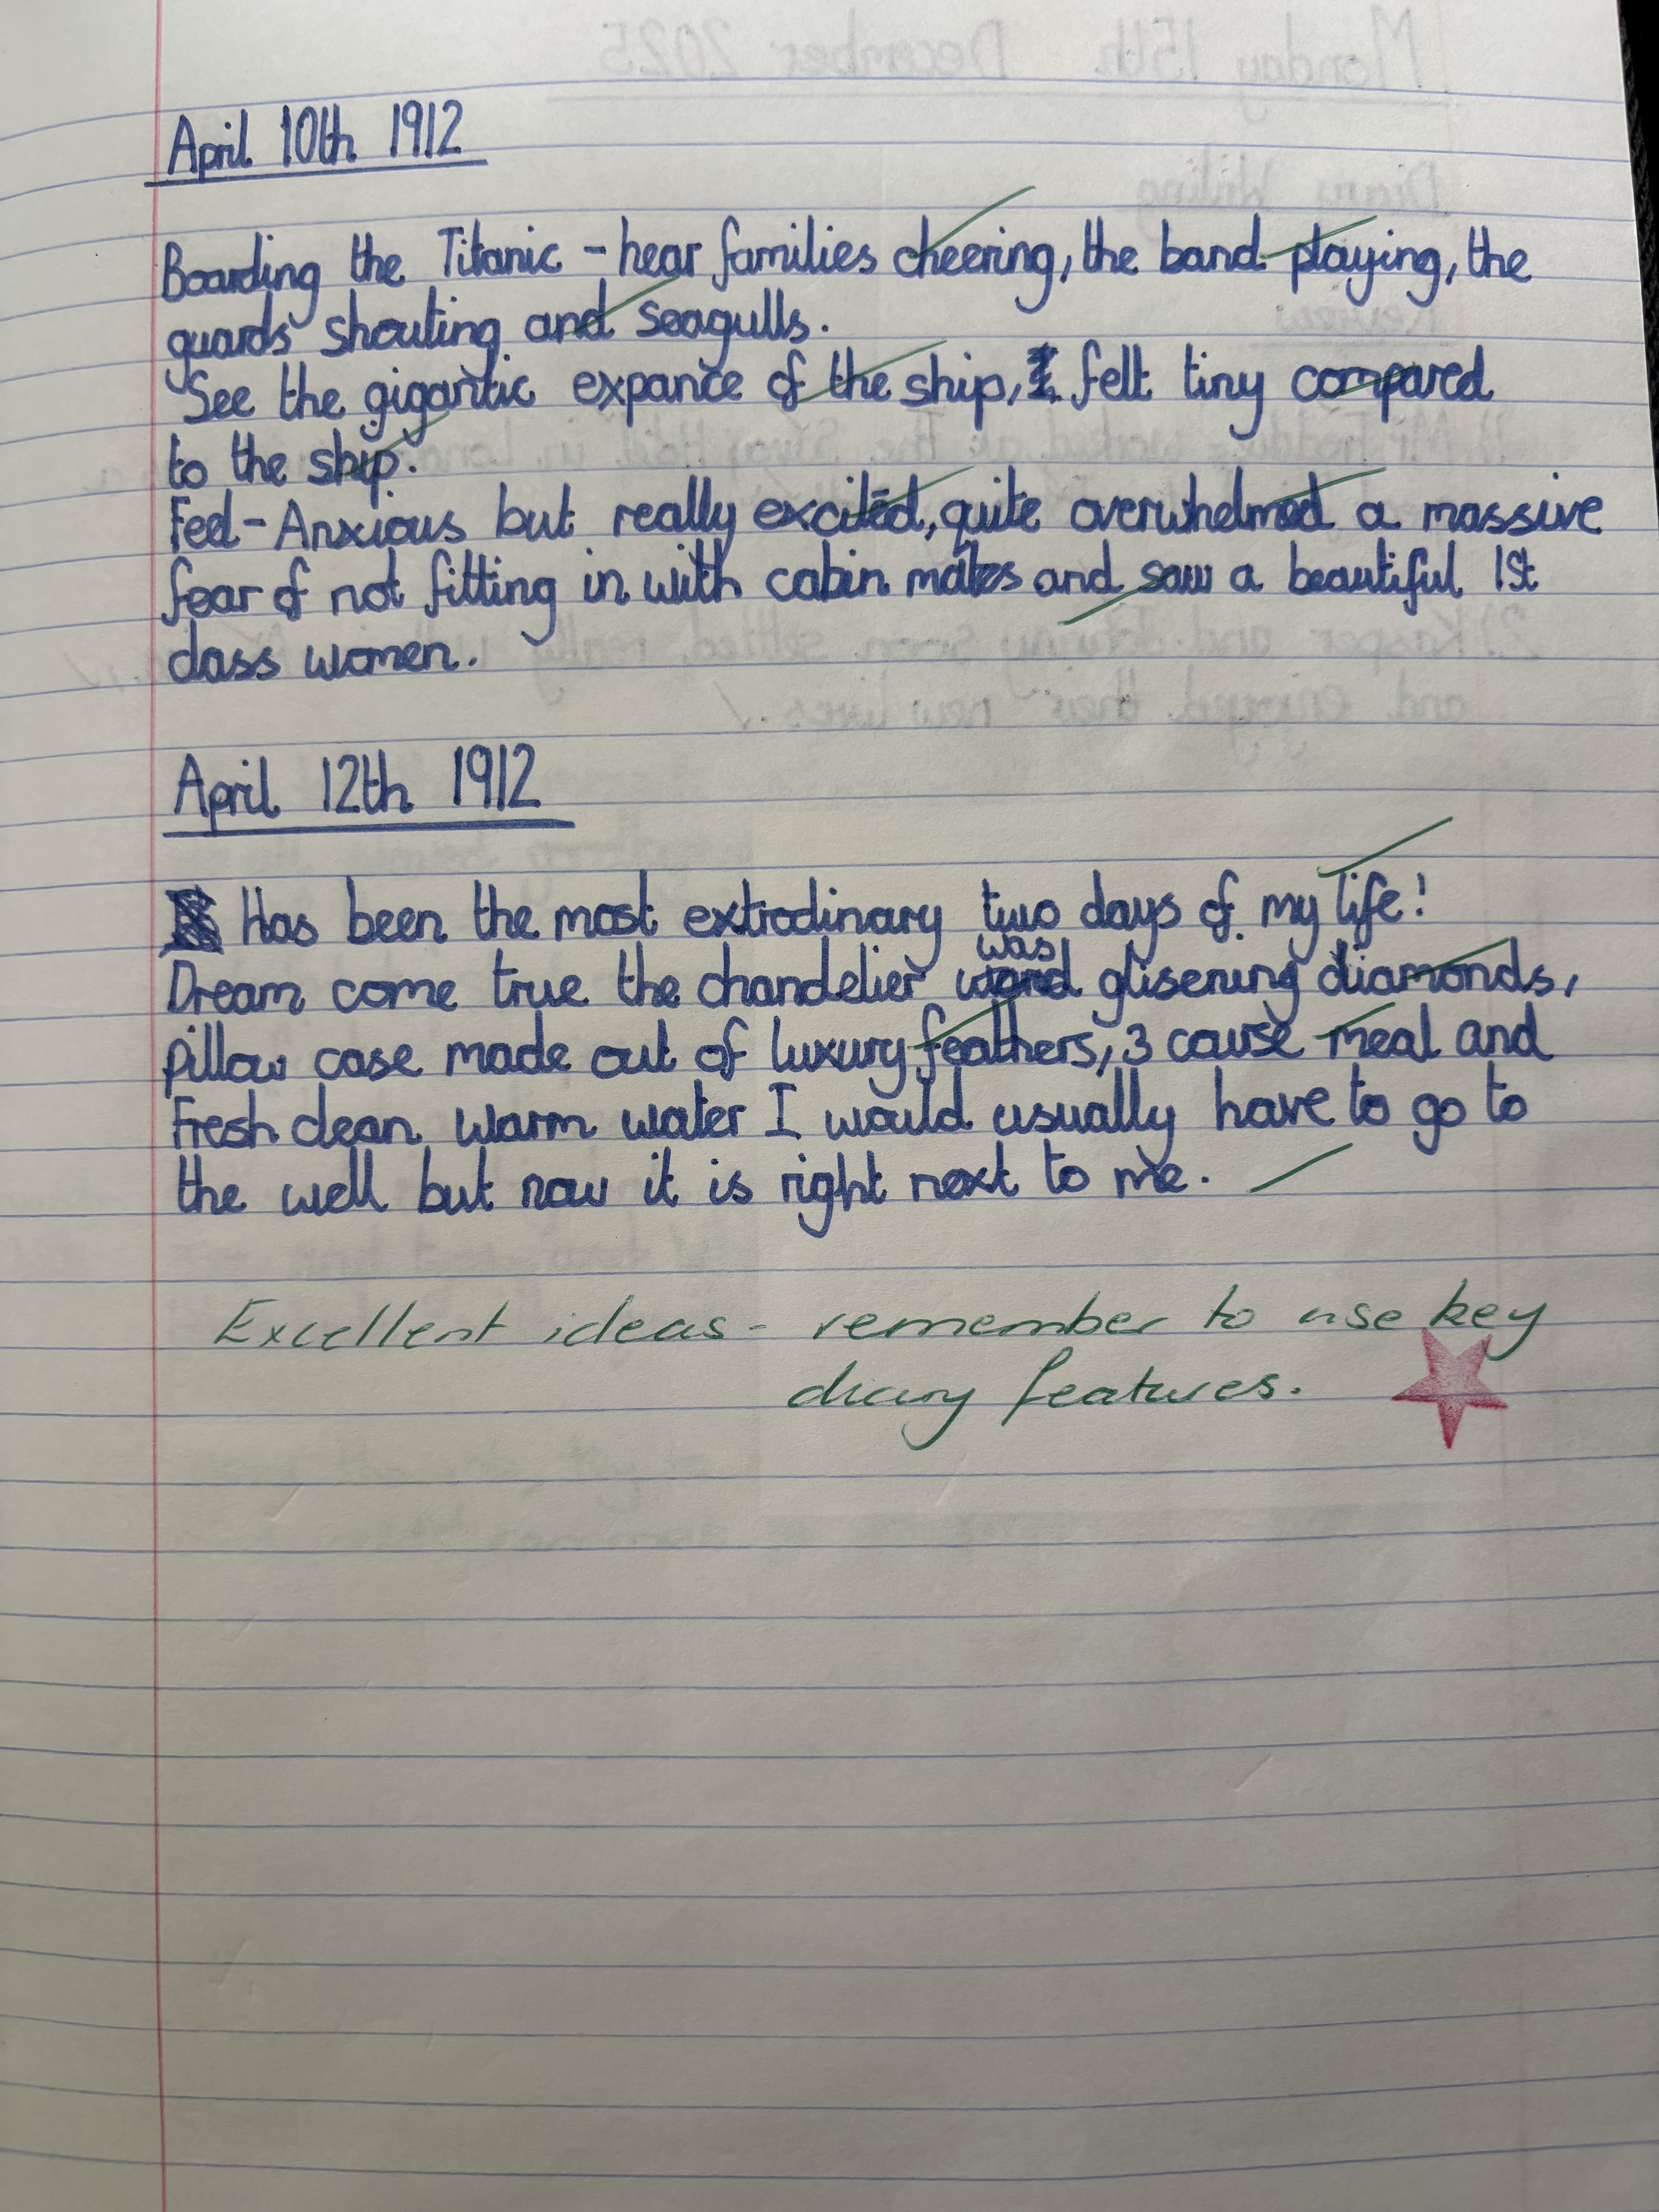 April 10th 1912
Boarding the Titanic - hear families cheering, the band playing, the
guards shouting and seagulls.
See the gigantic expance of the ship, I felt tiny compared
to the ship.
Feel - Anxious but really excited, quite overwhelmed a massive
fear of not fitting in with cabin mates and saw a beautiful 1st
class women.
April 12th 1912
Has been the most extrodinary two days of my life!
was
Dream come true the chandelier glisening diamonds,
pillow case made out of luxury feathers, 3 course meal and
Fresh clean warm water I would usually have to go to
the well but now it is right next to me.
Excellent ideas - remember to use key
diary features.